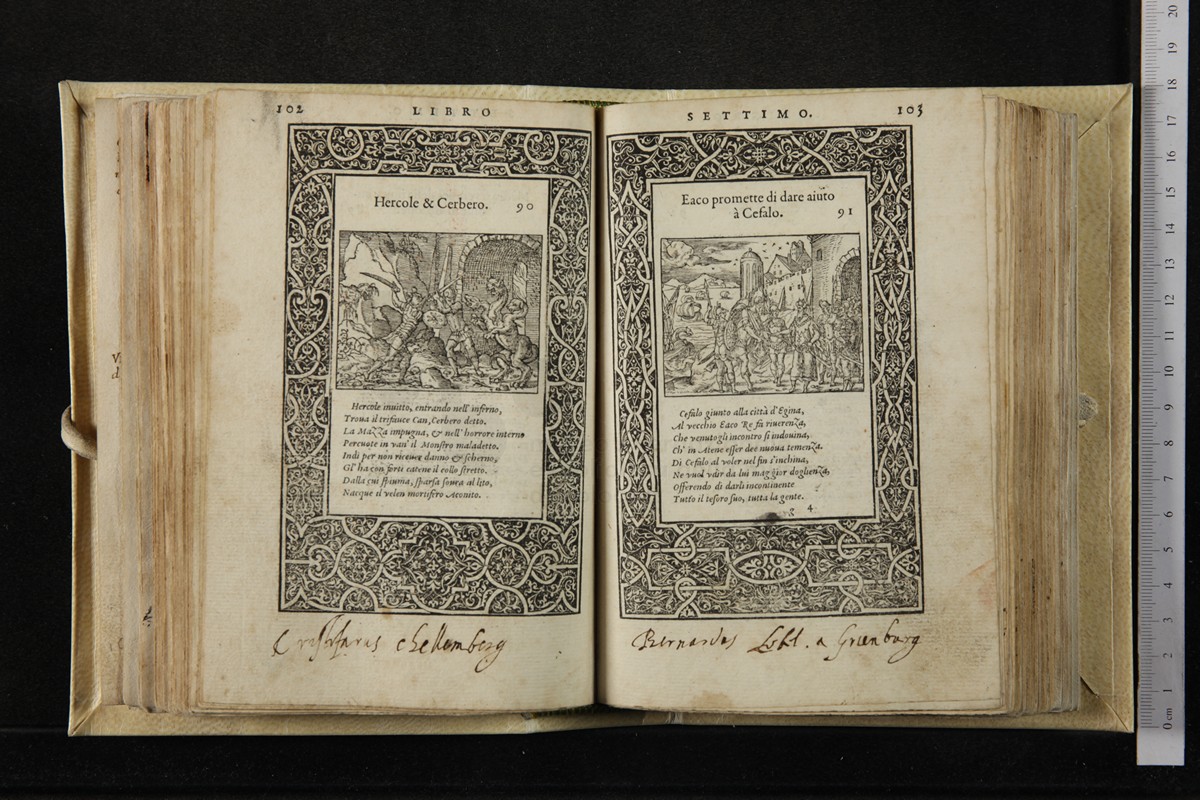 102 LIBRO
Hercole & Cerbero. 90
Hercole inuitto, entrando nell' inferno,
Troua il trifauce Can, Cerbero detto.
La Mazza impugna, & nell' horrore interno
Percuote in van' il Monstro maladetto.
Indi per non riceuer danno & scherno,
Gl' ha con forti catene il collo stretto.
Dalla cui spiuma, sparsa soura al lito,
Nacque il velen mortifero Aconito.
chellemberg
SETTIMO. 103
Eaco promette di dare aiuto
à Cefalo. 91
Cefalo giunto alla città d' Egina,
Al vecchio Eaco Re fà riuerenza,
Che venutogli incontro si indouina,
Ch' in Atene esser dee nuoua temenza.
Di Cefalo al voler nel fin s'inchina,
Ne vuol vdir da lui maggior doglienza,
Offerendo di darli incontinente
Tutto il tesoro suo, tutta la gente.
g 4
Bernardus a Grienburg
0 cm 1 2 3 4 5 6 7 8 9 10 11 12 13 14 15 16 17 18 19 20